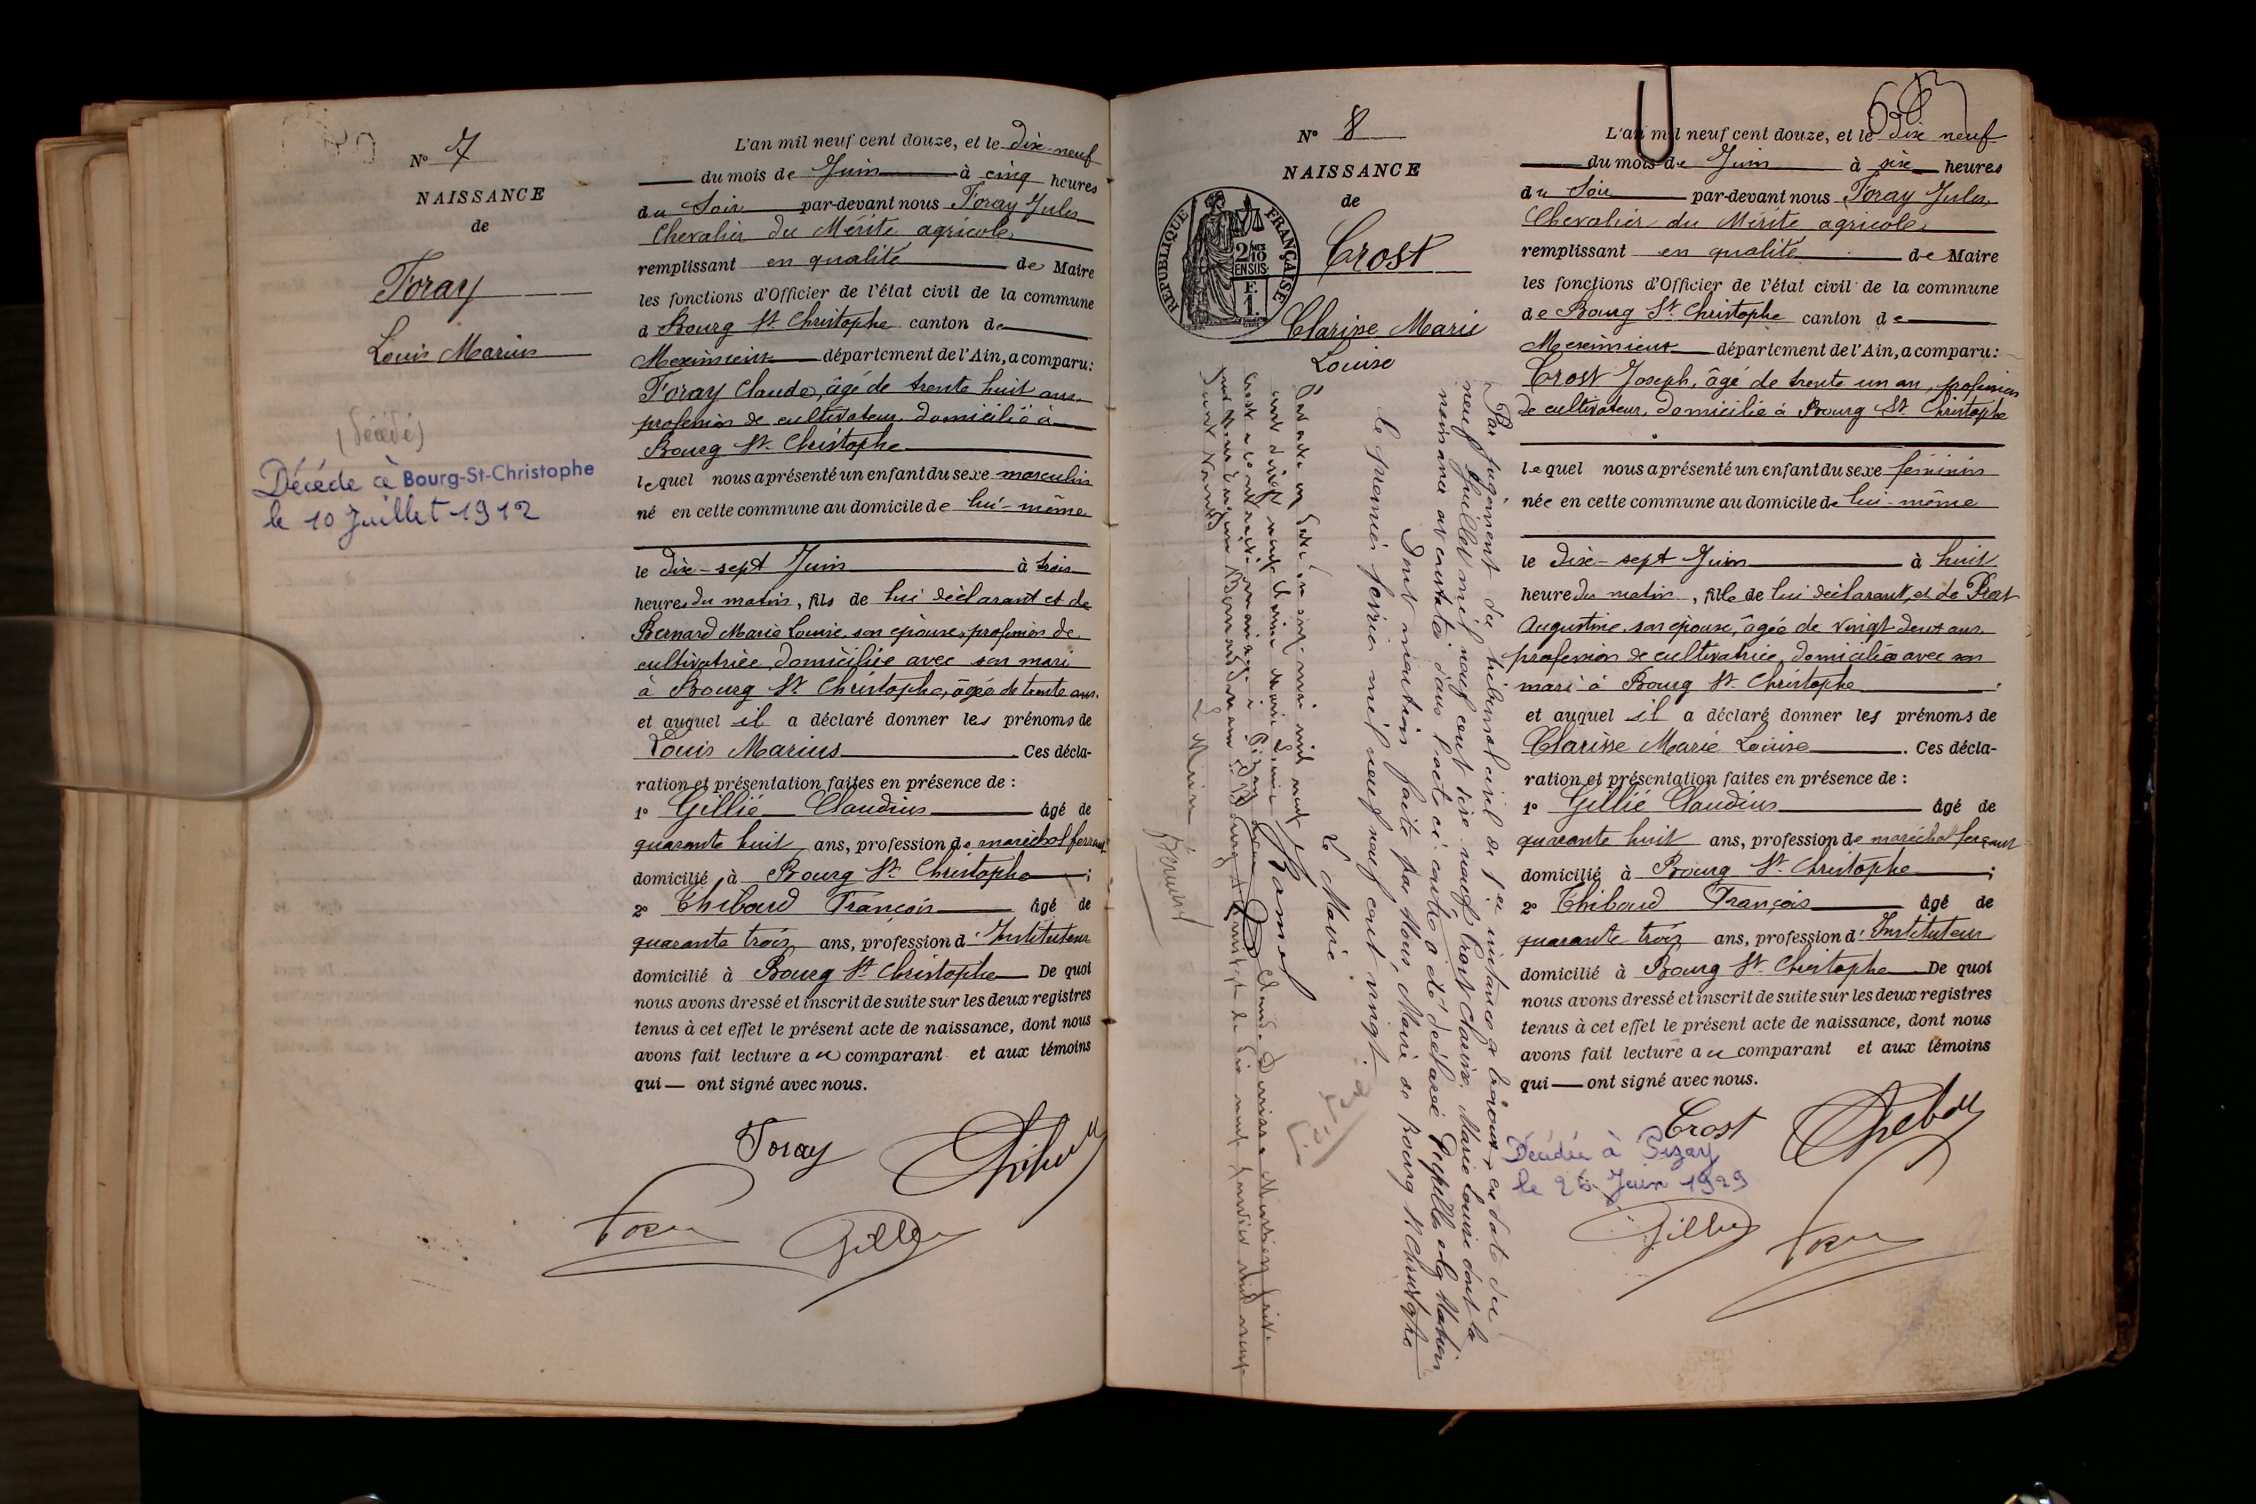 N° 7
NAISSANCE
de
Foray
Louis Marius
(Décédé)
Décédé à Bourg-St-Christophe
le 10 Juillet 1912
L'an mil neuf cent douze, et le dix-neuf
du mois de Juin à cinq heures
du Soir par-devant nous Foray Jules
Chevalier du Mérite agricole
remplissant en qualité de Maire
les fonctions d'Officier de l'état civil de la commune
d Bourg St Christophe canton de
Meximieux département de l'Ain, a comparu:
Foray Claude, âgé de trente huit ans
profession de cultivateur, domicilié à
Bourg St Christophe
lequel nous a présenté un enfant du sexe masculin
né en cette commune au domicile de lui-même
le dix-sept Juin à trois
heures du matin, fils de lui déclarant et de
Bernard Marie Louise, son épouse, profession de
cultivatrice, domiciliée avec son mari
à Bourg St Christophe, âgée de trente ans.
et auquel il a déclaré donner les prénoms de
Louis Marius. Ces décla-
ration et présentation faites en présence de :
1° Gillié Claudius âgé de
quarante huit ans, profession de maréchal ferrant
domicilié à Bourg St Christophe ;
2° Thibaud François âgé de
quarante trois ans, profession d'Instituteur
domicilié à Bourg St Christophe De quoi
nous avons dressé et inscrit de suite sur les deux registres
tenus à cet effet le présent acte de naissance, dont nous
avons fait lecture au comparant et aux témoins
qui ont signé avec nous.
Foray
N° 8
NAISSANCE
de
Crost
Clarisse Marie
Louise
RÉPUBLIQUE FRANÇAISE
2/10 EN SUS
F. 1.
Par jugement du tribunal civil de 1er instance de Trévoux, en date du
neuf Juillet mil neuf cent dix neuf, Crost Clarisse Marie Louise dont la
naissance est constatée dans l'acte ci-contre a été déclarée Pupille de la Nation
Dont mention faite par Nous, Maire de Bourg St Christophe
le premier février mil neuf cent vingt.
Le Maire
L'an mil neuf cent douze, et le dix neuf
du mois de Juin à six heures
du Soir par-devant nous Foray Jules
Chevalier du Mérite agricole
remplissant en qualité de Maire
les fonctions d'Officier de l'état civil de la commune
de Bourg St Christophe canton de
Meximieux département de l'Ain, a comparu:
Crost Joseph, âgé de trente un an, profession
de cultivateur, domicilié à Bourg St Christophe
lequel nous a présenté un enfant du sexe féminin
née en cette commune au domicile de lui-même
le dix-sept Juin à huit
heure du matin, fille de lui déclarant, et de Prat
Augustine, son épouse, âgée de vingt deux ans.
profession de cultivatrice, domiciliée avec son
mari à Bourg St Christophe
et auquel il a déclaré donner les prénoms de
Clarisse Marie Louise. Ces décla-
ration et présentation faites en présence de :
1° Gillié Claudius âgé de
quarante huit ans, profession de maréchal ferrant
domicilié à Bourg St Christophe ;
2° Thibaud François âgé de
quarante trois ans, profession d'Instituteur
domicilié à Bourg St Christophe De quoi
nous avons dressé et inscrit de suite sur les deux registres
tenus à cet effet le présent acte de naissance, dont nous
avons fait lecture au comparant et aux témoins
qui ont signé avec nous.
Crost
Décédée à Pizay
le 26 Juin 1929